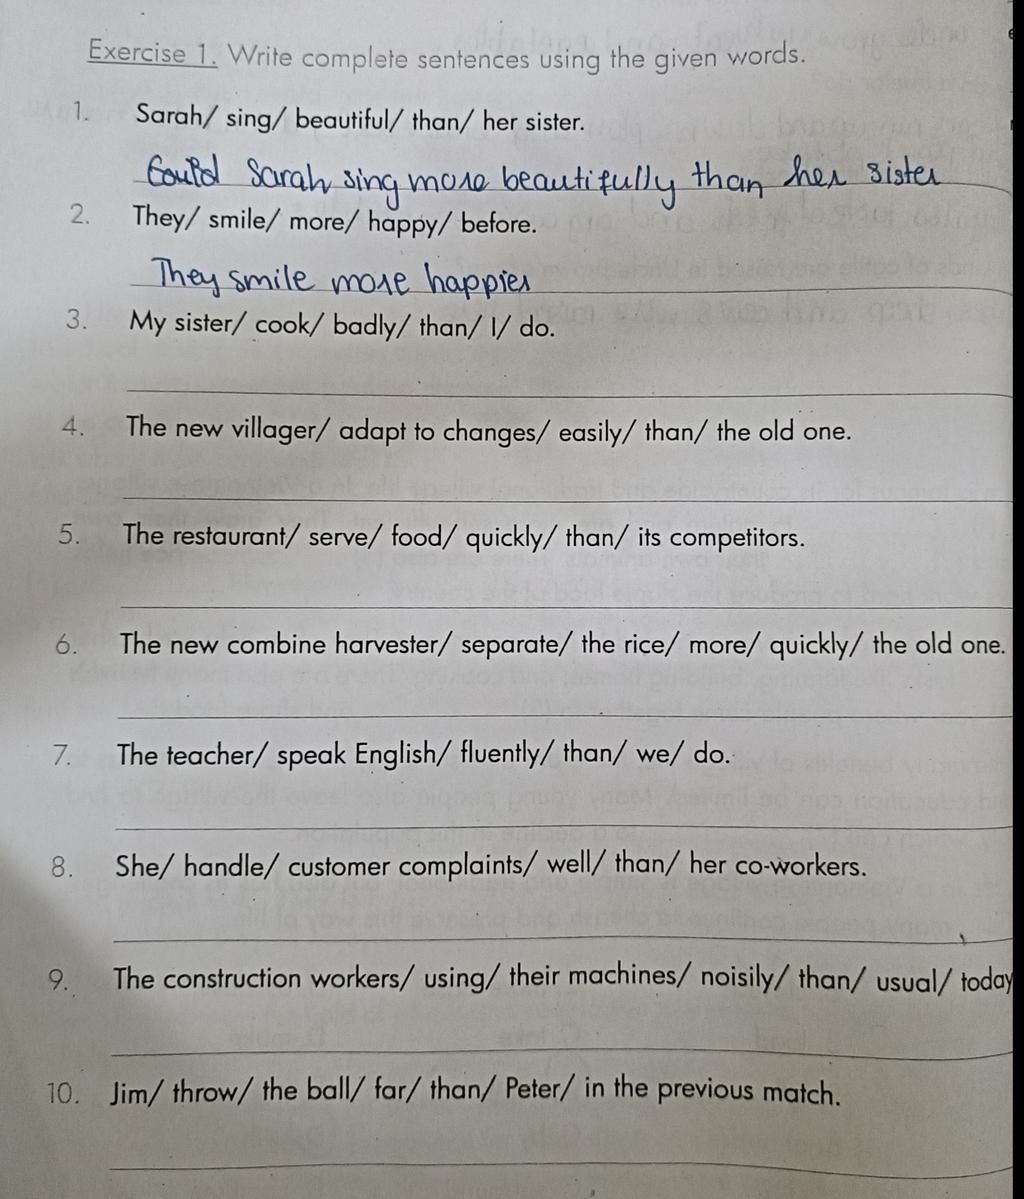 Exercise 1. Write complete sentences using the given words.
1. Sarah/ sing/ beautiful/ than/ her sister.
Could Sarah sing more beautifully than her sister
2. They/ smile/ more/ happy/ before.
They smile more happier
3. My sister/ cook/ badly/ than/ I/ do.
4. The new villager/ adapt to changes/ easily/ than/ the old one.
5. The restaurant/ serve/ food/ quickly/ than/ its competitors.
6. The new combine harvester/ separate/ the rice/ more/ quickly/ the old one.
7. The teacher/ speak English/ fluently/ than/ we/ do.
8. She/ handle/ customer complaints/ well/ than/ her co-workers.
9. The construction workers/ using/ their machines/ noisily/ than/ usual/ today
10. Jim/ throw/ the ball/ far/ than/ Peter/ in the previous match.